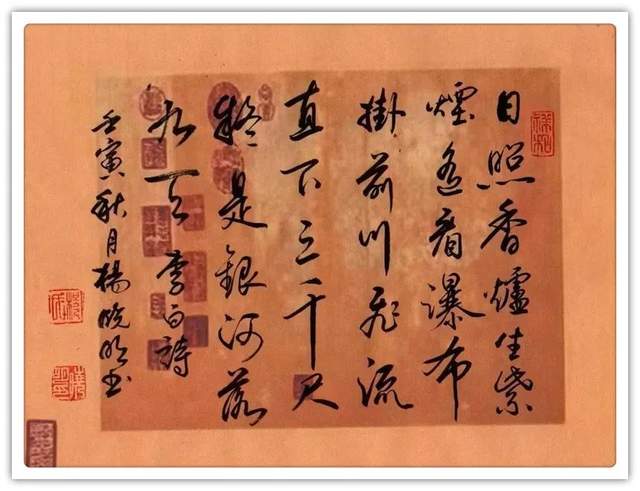 日照香爐生紫
煙遙看瀑布
掛前川飛流
直下三千尺
疑是銀河落
九天 李白詩
壬寅秋月楊曉明书